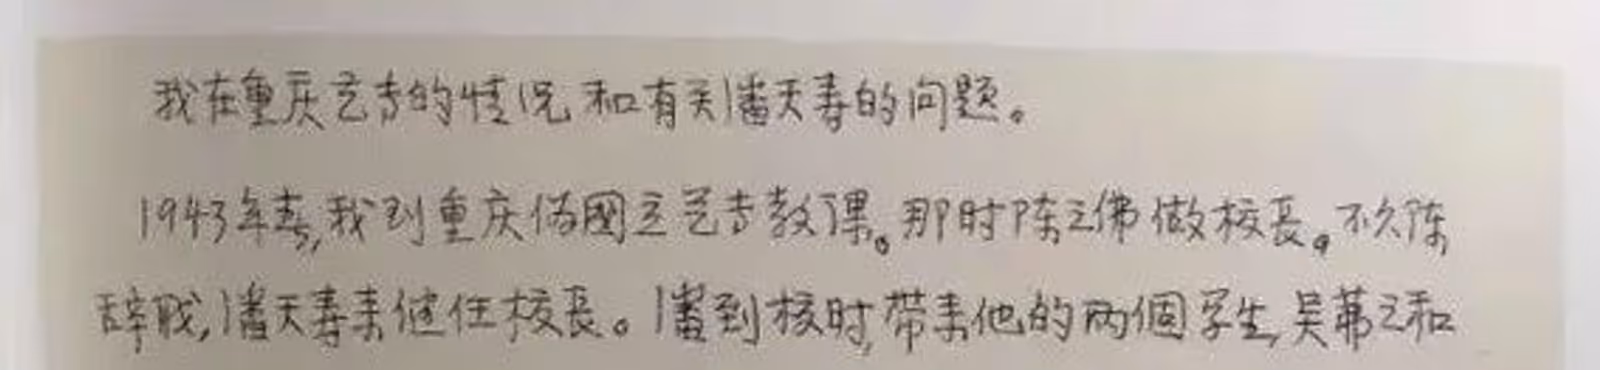 我在重庆艺专的情况和有关潘天寿的问题。
1943年春,我到重庆伪國立艺专教课。那时陈之佛做校長。不久陈
辞职,潘天寿来继任校長。潘到校时,带来他的两個学生,吴茀之和